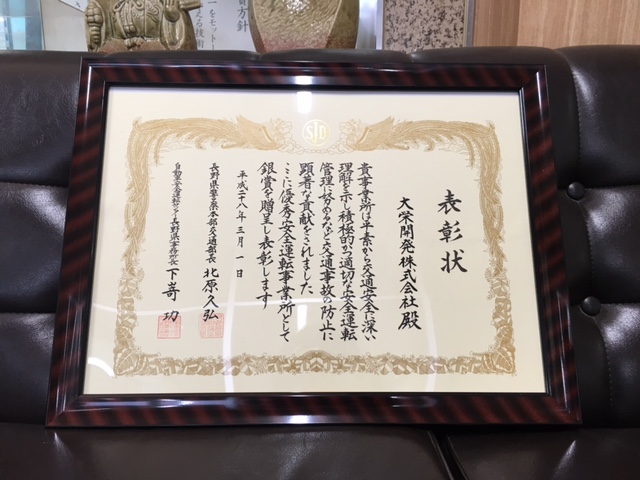 表彰状
大栄開発株式会社 殿
貴事業所は平素から交通安全に深い
理解を示し積極的かつ適切な安全運転
管理に努めるなど交通事故の防止に
顕著な貢献をされました
ここに優秀安全運転事業所として
銀賞を贈呈し表彰します
平成二十八年三月一日
長野県警察本部交通部長 北原久弘
自動車安全運転センター長野県事務所長 下嵜功